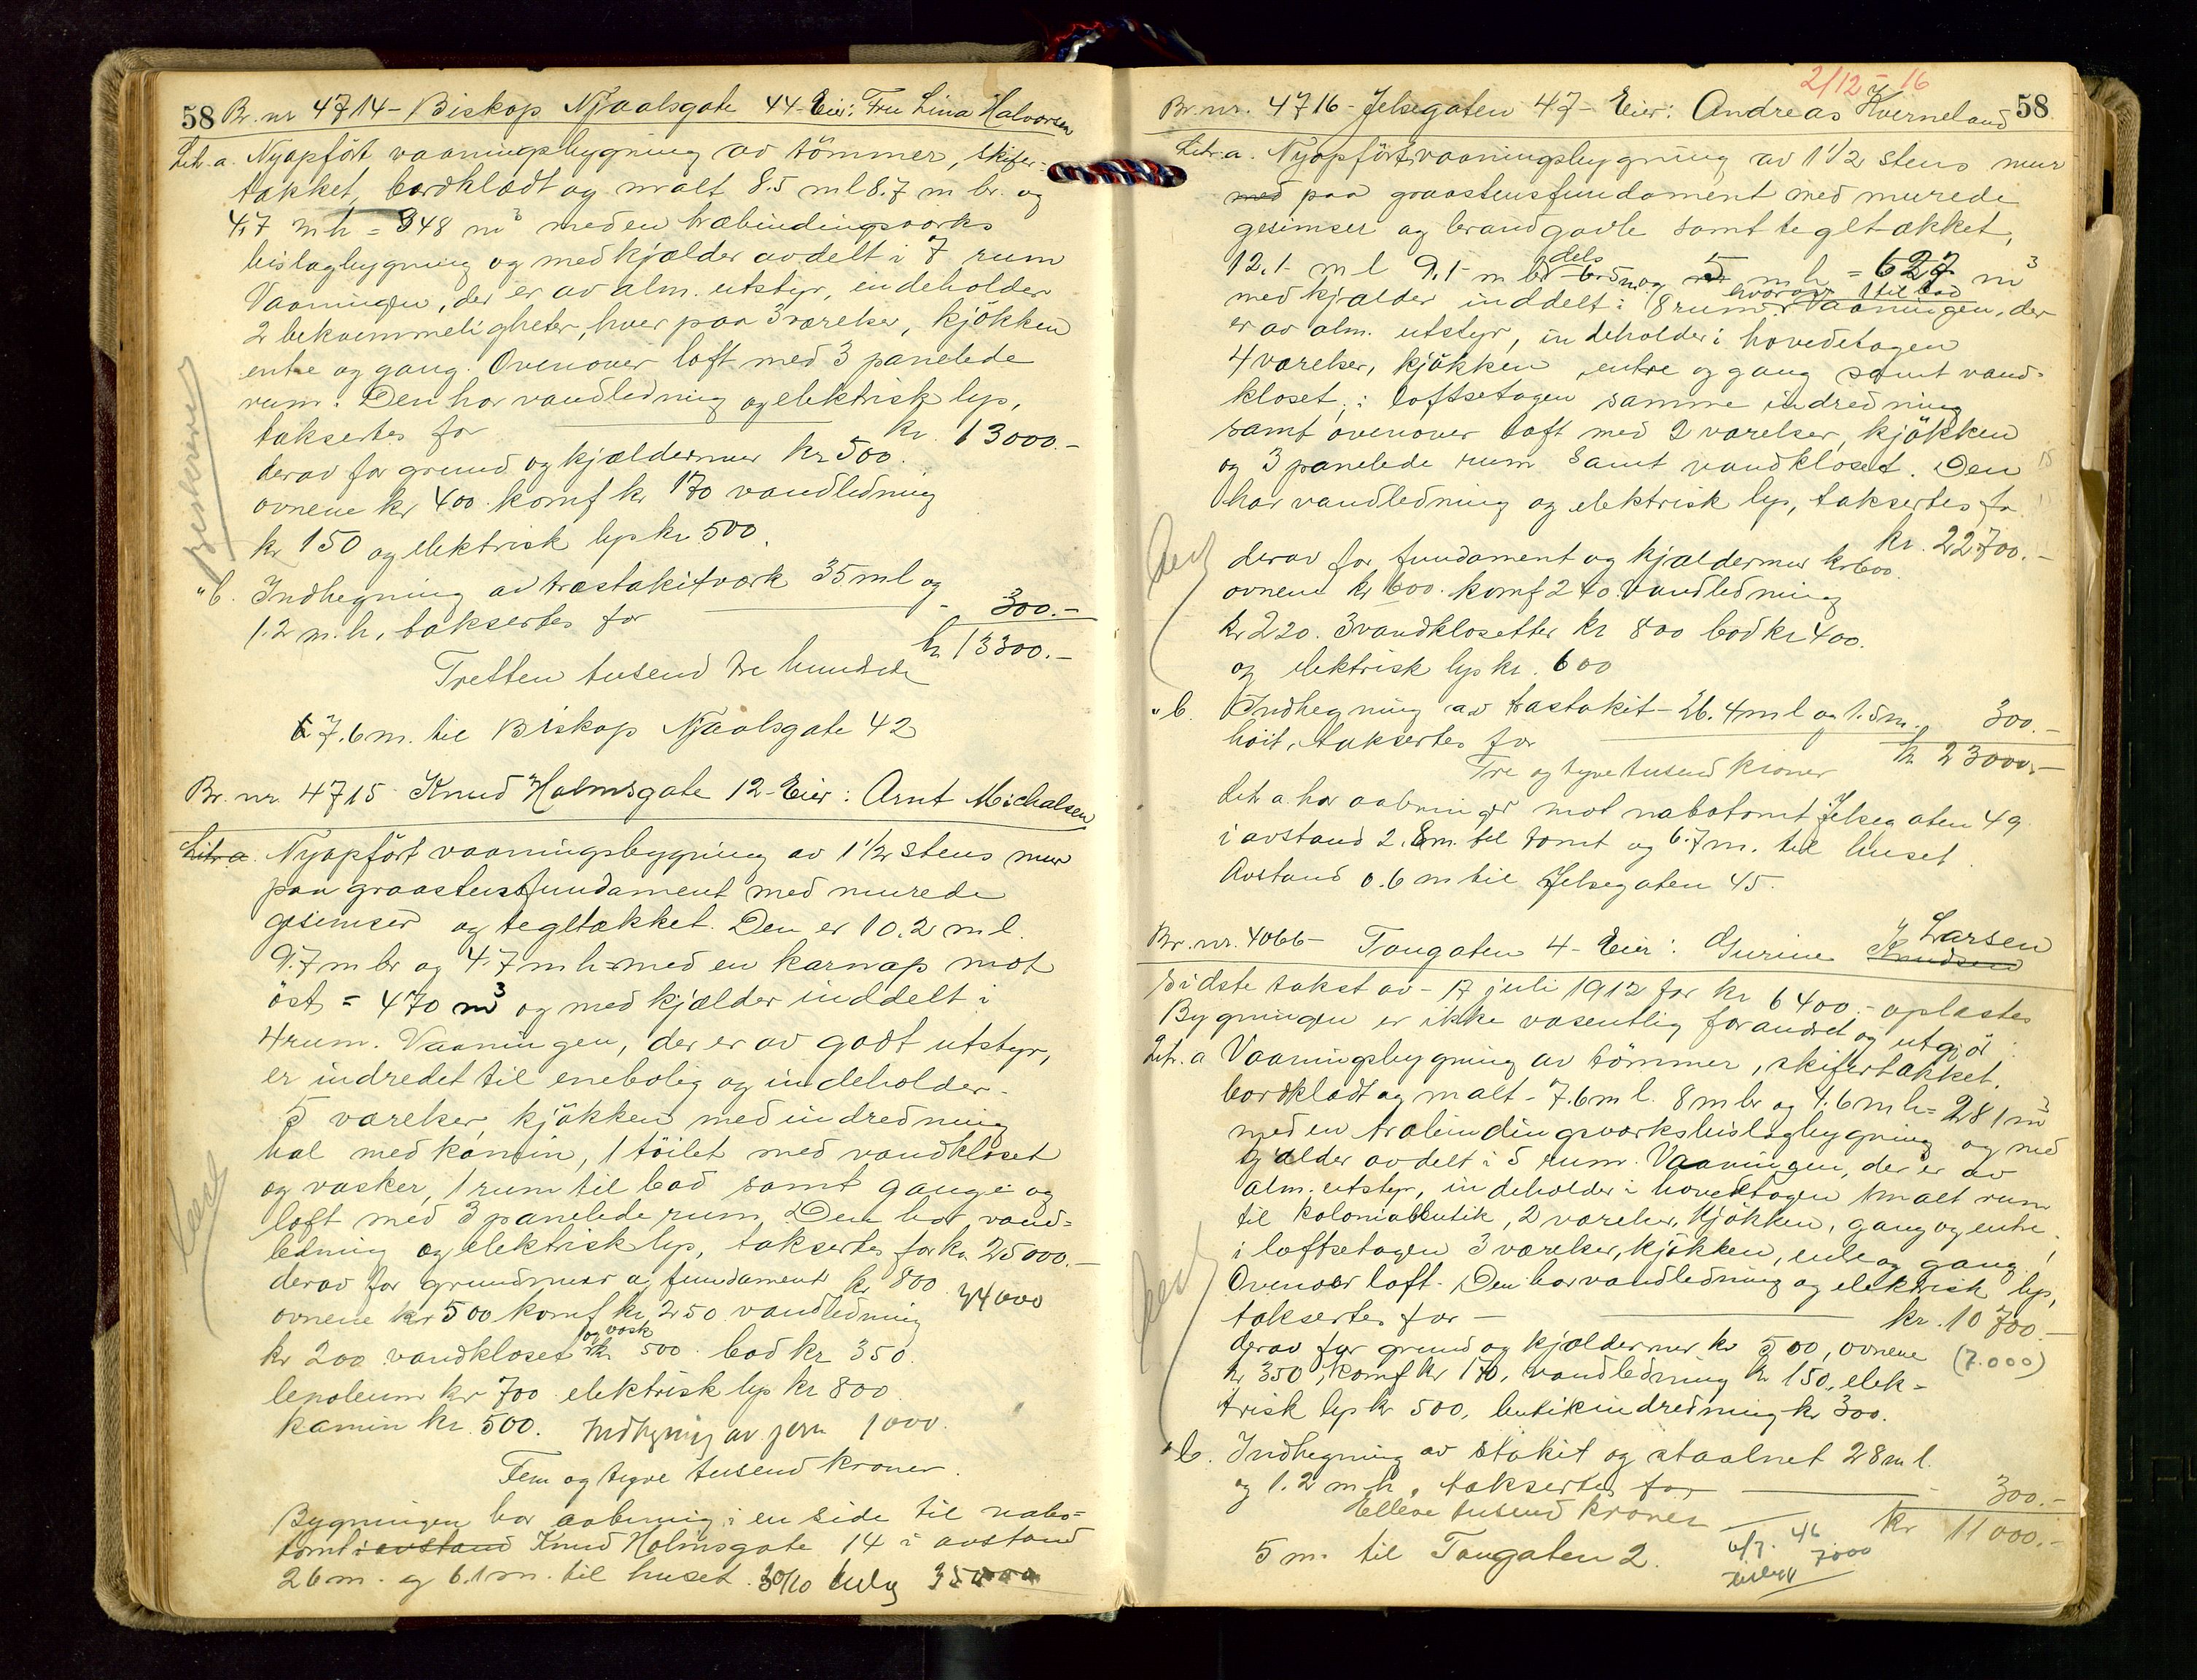 58 Br. nr 4714 - Biskop Njaalsgate 44 - Eier: Fru Lina Halvorsen
Litr. a. Nyopfört vaaningsbygning av tömmer, skifer-
takket, bordklædt og malt 8.5 m l 8.7 m br. og
4,7 m h = 348 m³ med en træbindingsverks
bislagbygning og med kjælder avdelt i 7 rum
Vaaningen, der er av alm. utstyr, indeholder
2 bekvemmeligheter, hver paa 3 værelser, kjökken
entre og gang. Ovenover loft med 3 panelede
rum. Den har vandledning og elektrisk lys,
taksertes for kr. 13000.-
derav for grund og kjældermur kr 500.
ovnene kr 400. komf kr 170 vandledning
kr 150 og elektrisk lys kr 500.
Beskrevet
" b. Indhegning av træstakitværk 35 m l og
1.2 m. h, taksertes for - 300.-
kr 13300.-
Tretten tusend tre hundrede
7.6 m. til Biskop Njaalsgate 42
Br. nr 4715 Knud Holmsgate 12 - Eier: Arnt Michalsen
Litr a. Nyopfört vaaningsbygning av 1 1/2 stens mur
paa graastensfundament med murede
gesimser og tegltækket. Den er 10.2 m l.
9.7 m br og 4.7 m h med en karnap mot
öst = 470 m³ og med kjælder inddelt i
4 rum. Vaaningen, der er av godt utstyr,
er indredet til enebolig og indeholder
5 værelser, kjökken med indredning
hal med kamin, 1 töilet med vandkloset
og vasker, 1 rum til bad samt gange og
loft med 3 panelede rum. Den har vand-
ledning og elektrisk lys, taksertes for kr 25000.-
derav for grundmur og fundament kr 800. 34000
ovnene kr 500 komf kr 250 vandledning
kr 200 vandkloset og vask kr 500. bad kr 350.
lenoleum kr 700 elektrisk lys kr 800.
kamin kr. 500. Indhegning av jern 1000.
Fem og tyve tusend kroner.
Bygningen har aabning i en side til nabo-
tomt i avstand Knud Holmsgate 14 i avstand
26 m. og 6.1 m. til huset. 30/10
2/12 - 16
Br. nr. 4716 - Jelsegaten 47 - Eier: Andreas Kverneland 58
Litr. a. Nyopfört vaaningsbygning av 1 1/2 stens mur
med paa graastensfundament med murede
gesimser og brandgavle samt tegltækket,
12.1 m l 9.1 m br og 5 m h = 627 m³
med kjælder inddelt i 8 rum hvorav 1 til bad. Vaaningen, der
er av alm. utstyr, indeholder i hovedetagen
4 værelser, kjökken, entre og gang samt vand-
kloset, i loftsetagen samme indredning
samt ovenover loft med 2 værelser, kjökken
og 3 panelede rum samt vandkloset. Den
har vandledning og elektrisk lys, taksertes for
kr. 22700.-
derav for fundament og kjældermur kr 600.
ovnene kr 600. komf 240. vandledning
kr 220. 3 vandklosetter kr 800 bad kr 400.
og elektrisk lys kr. 600
" b. Indhegning av træstakit - 26.4 m l og 1.5 m. 300.-
höit, taksertes for kr 23000.-
Tre og tyve tusend kroner
Litr a. har aabninger mot nabotomt Jelsegaten 49
i avstand 2.8 m. til tomt og 6.7 m. til huset.
Avstand 0.6 m til Jelsegaten 45.
Br. nr. 4066 - Tangaten 4 - Eier: Gurine Knudsen Larsen
Sidste takst av - 17 juli 1912 for kr 6400.- oplæstes
Bygningen er ikke væsentlig forandret og utgjör:
Litr. a Vaaningsbygning av tömmer, skifertækket,
bordklædt og malt - 7.6 m l. 8 m br og 4.6 m h = 281 m³
med en træbindingsværksbislagbygning og med
kjælder avdelt i 5 rum. Vaaningen, der er av
alm. utstyr, indeholder i hovedetagen 1 malt rum
til kolonialbutik, 2 værelser, kjökken, gang og entre,
i loftsetagen 3 værelser, kjökken, entre og gang.
Ovenover loft. Den har vandledning og elektrisk lys,
taksertes for - kr. 10700.-
derav for grund og kjældermur kr 500, ovnene (7.000)
kr 350, komf kr 170, vandledning kr 150, elek-
trisk lys kr 500, butikindredning kr 300.
" b. Indhegning av stakit og staalnet 28 m l.
og 1.2 m h, taksertes for - 300.-
Elleve tusend kroner kr 11000.-
5 m. til Tangaten 2. 6/7. 46 7000